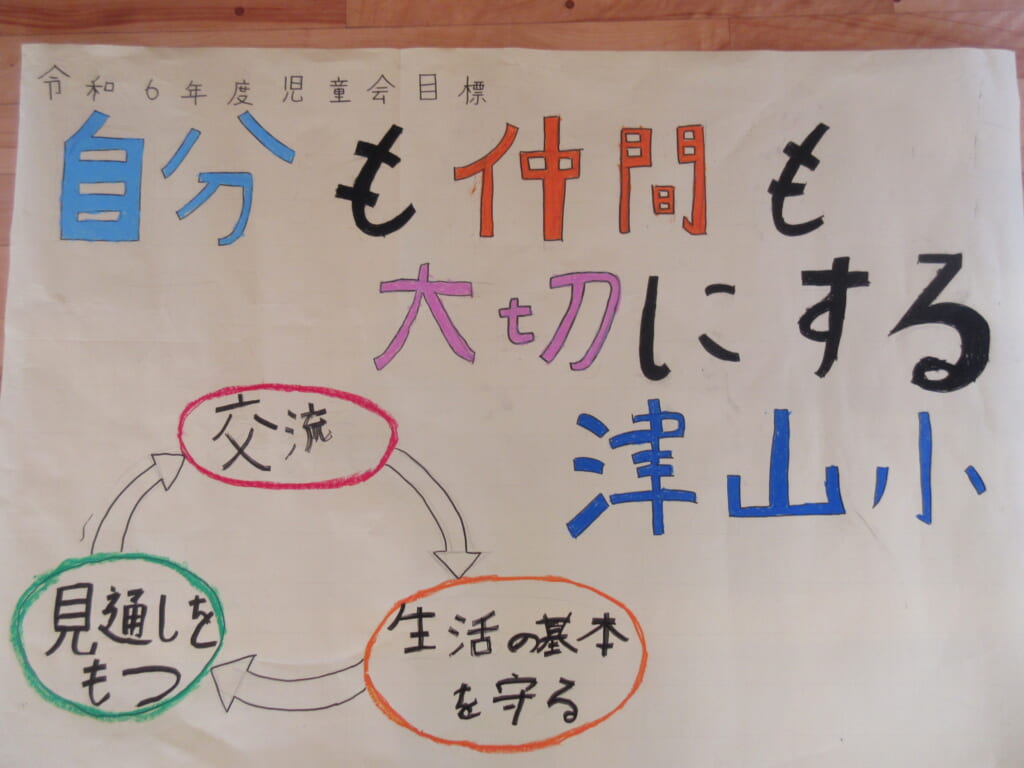 令和6年度児童会目標
自分も仲間も
大切にする
津山小
交流
生活の基本
を守る
見通しを
もつ